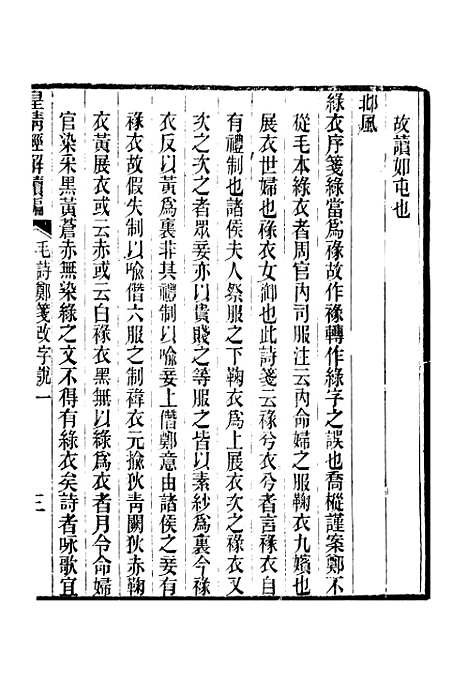 故讀如屯也
邶風
綠衣序箋綠當爲褖故作褖轉作綠字之誤也喬樅謹案鄭不
從毛本綠衣者周官內司服注云內命婦之服鞠衣九嬪也
展衣世婦也褖衣女御也此詩箋云褖兮衣兮者言褖衣自
有禮制也諸侯夫人祭服之下鞠衣爲上展衣次之褖衣又
次之次之者眾妾亦以貴賤之等服之皆以素紗爲裏今褖
衣反以黃爲裏非其禮制以喩妾上僭鄭意由諸侯之妾有
褖衣故假失制以喩僭六服之制褘衣元揄狄靑闕狄赤鞠
衣黃展衣或云赤或云白褖衣黑無以綠爲衣者月令命婦
官染采黑黃蒼赤無染綠之文不得有綠衣矣詩者咏歌宜
皇淸經解續編
毛詩鄭箋改字說一
三